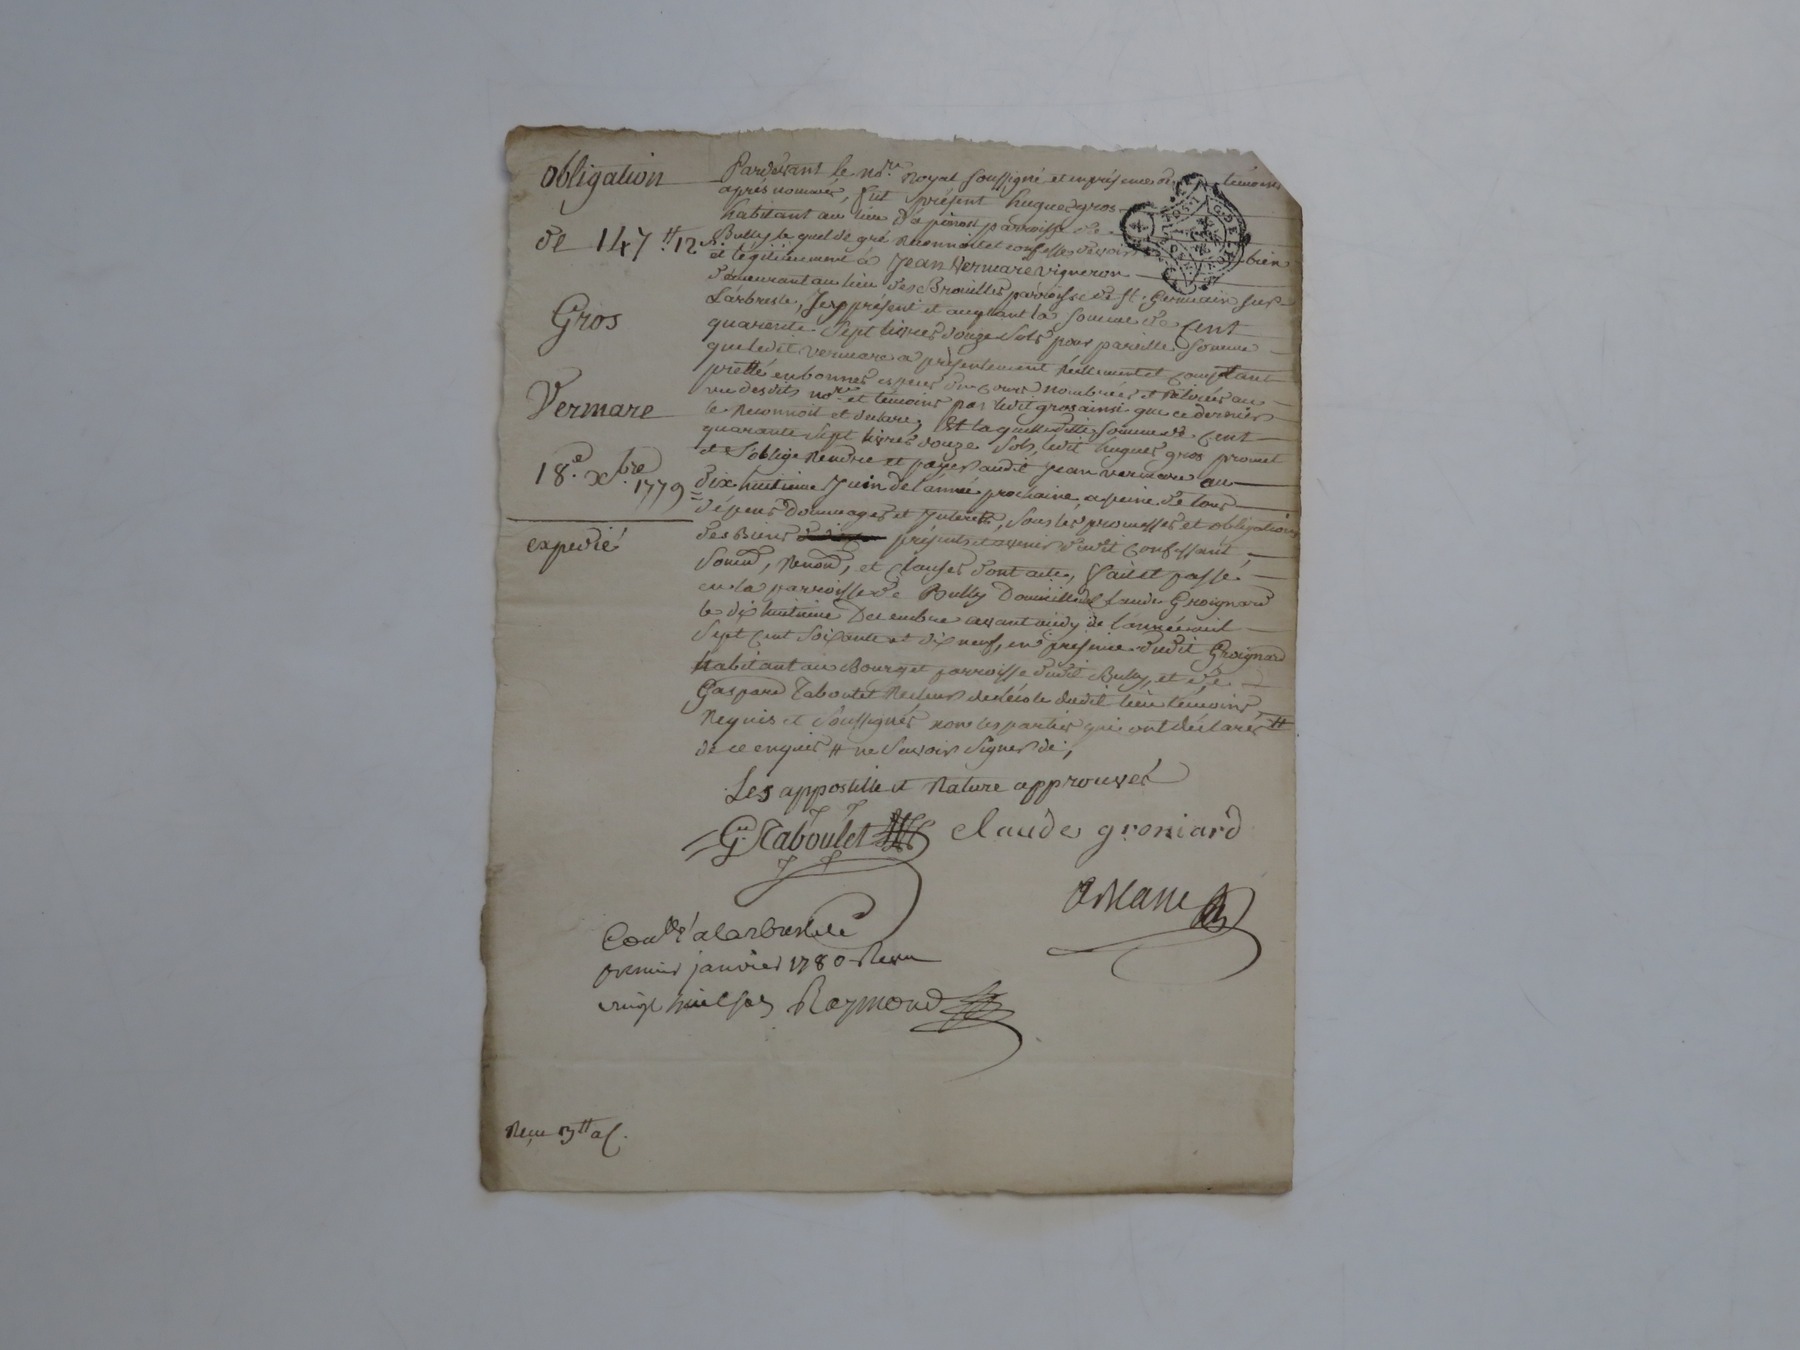 obligation
de 147 ₶ 12 s.
Gros
Vermare
18.e xbre 1779
expedié
Pardevant le nore. Royal soussigné et en présence des témoins
après nommés, fut présent hugues gros
habitant au lieu d'apinost parroisse de
Bully le quel de gré reconnoit et confesse devoir bien
et légitimement à Jean Vermare vigneron
demeurant au lieu des Brouilles parroisse de st. Germain sur
Larbresle, Icy présent et acceptant la somme de Cent
quarente sept livres douze sols pour pareille somme
que ledit vermare a présentement réellement et comptant
pretté en bonnes especes du cours nombrées et retirées au
vu desdits nore. et témoins par ledit gros ainsi que ce dernier
le reconnoit et declare; Et la quelle ditte somme de Cent
quarante sept livres douze sols, ledit hugues gros promet
et s'oblige rendre et payer audit Jean vermare au
dix huitieme Juin de l'année prochaine, a peine de tous
dépens dommages et Interets, sous les promesses et obligations
des Biens présents et avenir dudit Confessant,
soumd, renond, et clauses dont acte, fait et passé
en la parroisse de Bully Domicille de Claude Groignard
le dix huitieme Decembre avant midy de l'année mil
sept Cent soixante et dix neuf, en présence dudit Groignard
habitant au Bourg et parroisse dudit Bully, et de
Gaspard Taboulet Recteur de l'école dudit lieu témoins
requis et soussignés non les parties qui ont déclarés #
de ce enquis # ne savoir signer de;
Les appostille et rature approuvés
G. Taboulet claude groniard
Conllé a Larbresle le
premier janvier 1780 Recu
vingt huit sols Raymond
Reçu 3 ₶